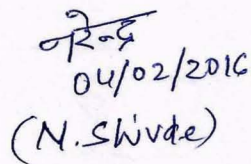 नरेन्द्र
04/02/2016
(N. Shivde)